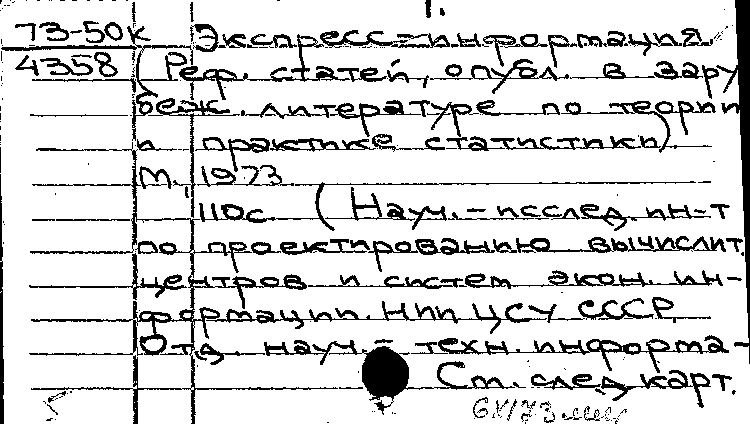 1.
73-50к Экспресс-информация.
4358 (Реф. статей, опубл. в зару
беж. литературе по теории
и практике статистики).
М., 1973
110с. (Науч.-исслед. ин-т
по проектированию вычислит.
центров и систем экон. ин-
формации. НИИ ЦСУ СССР.
Отд. науч.- техн. информа-
См. след. карт.